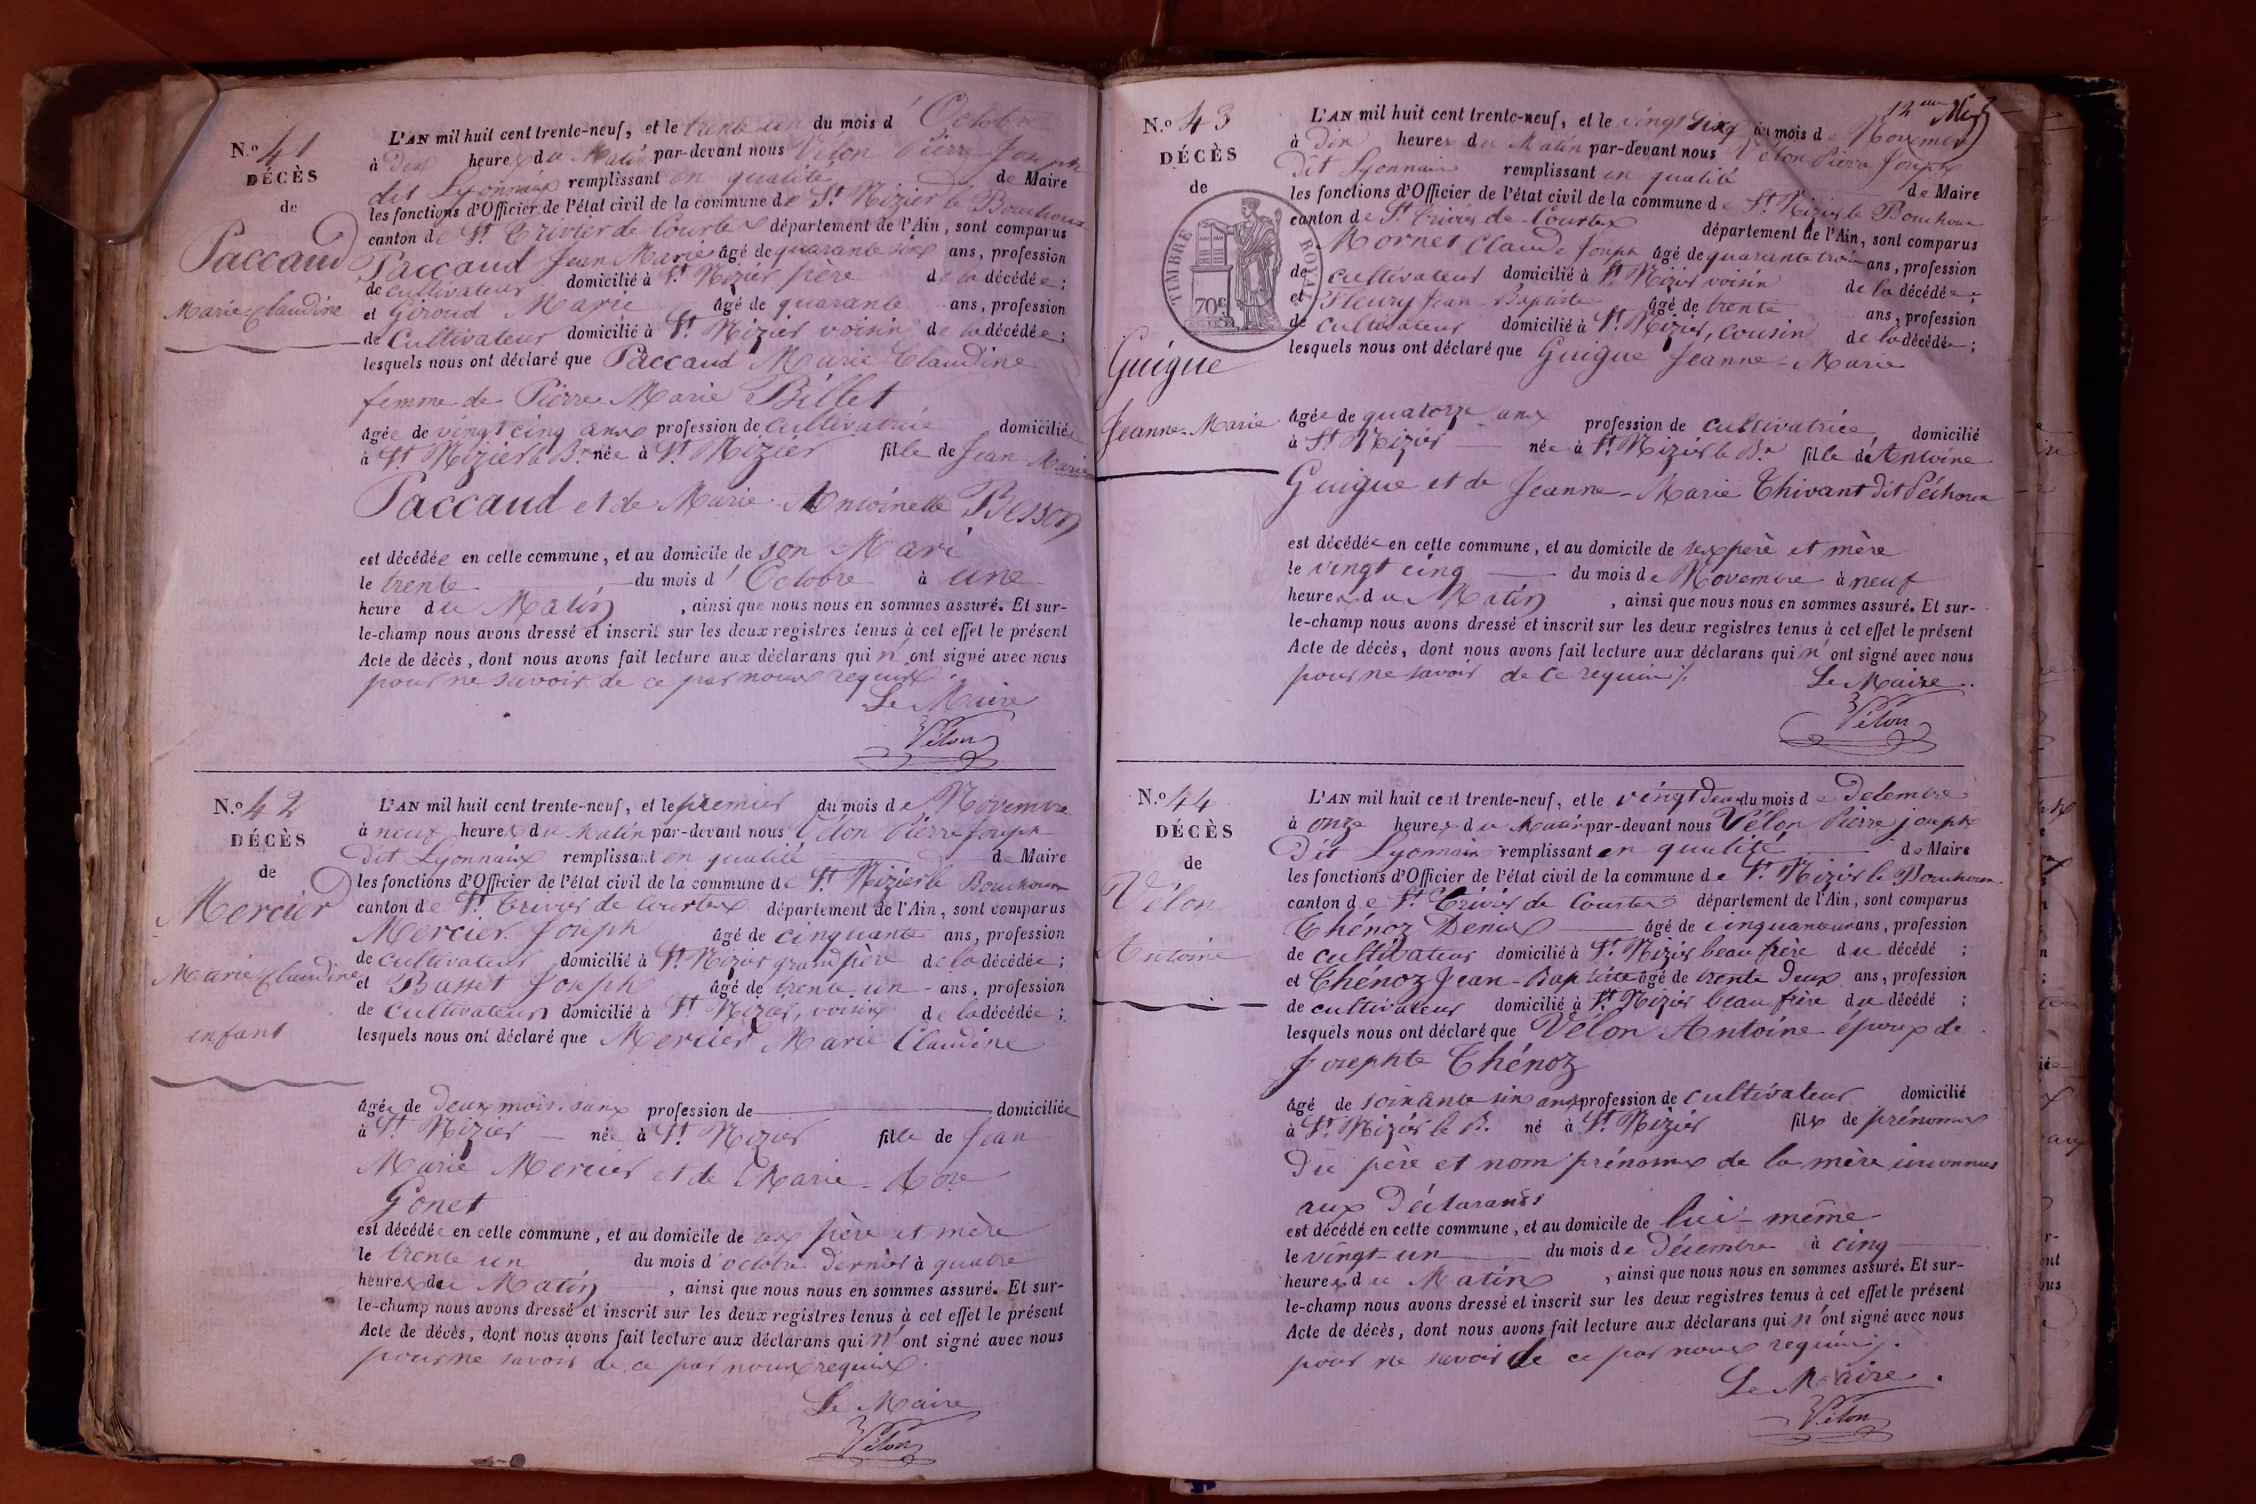 N.º 41
DÉCÈS
de
Paccaud
Marie-Claudine
L'AN mil huit cent trente-neuf, et le trente un du mois d'Octobre
à Dix heures du Matin par-devant nous Vélon Pierre Joseph
dit Lyonnaix remplissant en qualité de Maire
les fonctions d'Officier de l'état civil de la commune de St. Nizier le Bouchoux
canton de St. Trivier de Courtes département de l'Ain, sont comparus
Paccaud Jean Marie âgé de quarante six ans, profession
de cultivateur domicilié à St. Nizier père de la décédée;
et Giroud Marie âgé de quarante ans, profession
de Cultivateur domicilié à St. Nizier voisin de la décédée;
lesquels nous ont déclaré que Paccaud Marie Claudine
femme de Pierre Marie Billet
âgée de vingt cinq ans profession de Cultivatrice domiciliée
à St. Nizier le B.x née à St. Nizier fille de Jean Marie
Paccaud et de Marie Antoinette Besson
est décédée en cette commune, et au domicile de son Mari
le trente du mois d'Octobre à une
heure du Matin, ainsi que nous nous en sommes assuré. Et sur-
le-champ nous avons dressé et inscrit sur les deux registres tenus à cet effet le présent
Acte de décès, dont nous avons fait lecture aux déclarans qui n'ont signé avec nous
pour ne savoir de ce par nous requis
Le Maire
Vélon
N.º 42
DÉCÈS
de
Mercier
Marie Claudine
enfant
L'AN mil huit cent trente-neuf, et le premier du mois de Novembre
à neuf heures du Matin par-devant nous Vélon Pierre Joseph
dit Lyonnaix remplissant en qualité de Maire
les fonctions d'Officier de l'état civil de la commune de St. Nizier le Bouchoux
canton de St. Trivier de Courtes département de l'Ain, sont comparus
Mercier Joseph âgé de cinquante ans, profession
de cultivateur domicilié à St. Nizier grand père de la décédée;
et Basset Joseph âgé de trente un ans, profession
de Cultivateur domicilié à St. Nizier, voisin de la décédée;
lesquels nous ont déclaré que Mercier Marie Claudine
âgée de deux mois profession de domiciliée
à St. Nizier née à St. Nizier fille de Jean
Marie Mercier et de Marie
Gonet
est décédée en cette commune, et au domicile de ses père et mère
le trente un du mois d'octobre dernier à quatre
heures du Matin, ainsi que nous nous en sommes assuré. Et sur-
le-champ nous avons dressé et inscrit sur les deux registres tenus à cet effet le présent
Acte de décès, dont nous avons fait lecture aux déclarans qui n'ont signé avec nous
pour ne savoir de ce par nous requis.
Le Maire
Vélon
N.º 43
DÉCÈS
de
TIMBRE ROYAL
70c
Guigue
Jeanne-Marie
L'AN mil huit cent trente-neuf, et le vingt six du mois de Novembre
à Dix heures du Matin par-devant nous Vélon Pierre Joseph
Dit Lyonnaix remplissant en qualité de Maire
les fonctions d'Officier de l'état civil de la commune de St. Nizier le Bouchoux
canton de St. Trivier de Courtes département de l'Ain, sont comparus
Mornet Claude Joseph âgé de quarante trois ans, profession
de cultivateur domicilié à St. Nizier voisin de la décédée;
et Fleury Jean-Baptiste âgé de trente ans, profession
de cultivateur domicilié à St. Nizier, cousin de la décédée;
lesquels nous ont déclaré que Guigue Jeanne-Marie
âgée de quatorze ans profession de cultivatrice domicilié
à St. Nizier née à St. Nizier le B.x fille de Antoine
Guigue et de Jeanne-Marie Thivant dit Péchoux
est décédée en cette commune, et au domicile de ses père et mère
le vingt cinq du mois de Novembre à neuf
heures du Matin, ainsi que nous nous en sommes assuré. Et sur-
le-champ nous avons dressé et inscrit sur les deux registres tenus à cet effet le présent
Acte de décès, dont nous avons fait lecture aux déclarans qui n'ont signé avec nous
pour ne savoir de ce requis /.
Le Maire.
Vélon
N.º 44
DÉCÈS
de
Vélon
Antoine
L'AN mil huit cent trente-neuf, et le vingt deux du mois de Décembre
à onze heures du Matin par-devant nous Vélon Pierre joseph
Dit Lyonnaix remplissant en qualité de Maire
les fonctions d'Officier de l'état civil de la commune de St. Nizier le Bouchoux
canton de St. Trivier de Courtes département de l'Ain, sont comparus
Thénoz Denis âgé de cinquante un ans, profession
de cultivateur domicilié à St. Nizier beau frère du décédé;
et Thénoz Jean-Baptiste âgé de trente deux ans, profession
de cultivateur domicilié à St. Nizier beau frère du décédé;
lesquels nous ont déclaré que Vélon Antoine époux de
Josephte Thénoz
âgé de soixante six ans profession de Cultivateur domicilié
à St. Nizier le B. né à St. Nizier fils de prénoms
Du père et nom prénoms de la mère inconnus
aux Déclarants
est décédé en cette commune, et au domicile de lui-même
le vingt-un du mois de Décembre à cinq
heures du Matin, ainsi que nous nous en sommes assuré. Et sur-
le-champ nous avons dressé et inscrit sur les deux registres tenus à cet effet le présent
Acte de décès, dont nous avons fait lecture aux déclarans qui n'ont signé avec nous
pour ne savoir de ce par nous requis /.
Le Maire.
Vélon